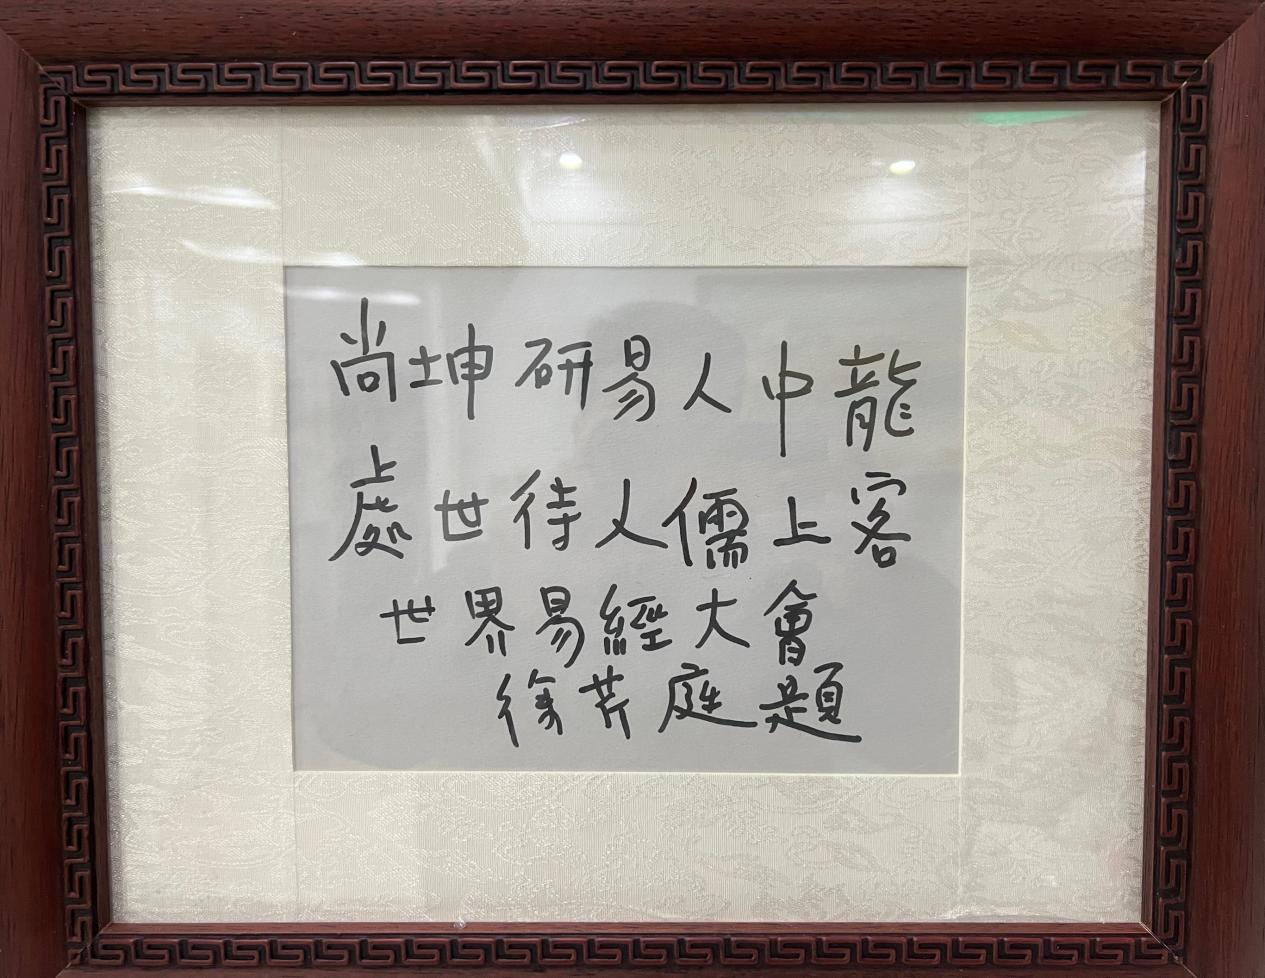 尚坤研易人中龍
處世待人儒上客
世界易經大會
徐芹庭題